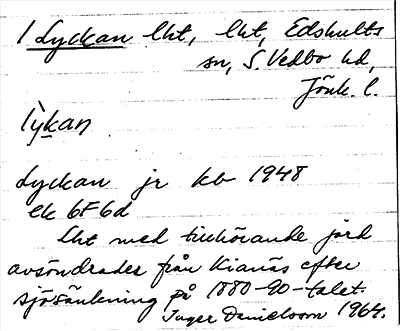 1 Lyckan lht, lht, Edshults
sn, S. Vedbo hd,
Jönk. l.
lỳkan
Lyckan jr kb 1948
ek 6F6d
Lht med tillhörande jord
avsöndrades från Kianäs efter
sjösänkning på 1880-90-talet.
Inger Danielsson 1964.